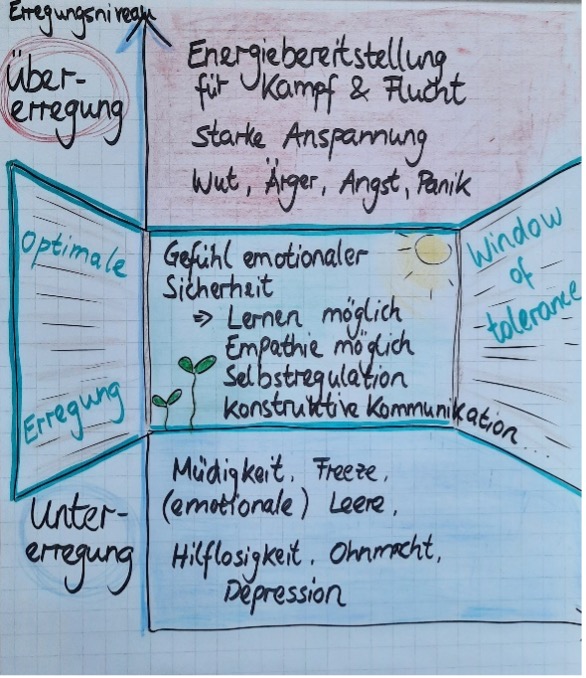 Erregungsniveau
Über-
erregung
Energiebereitstellung
für Kampf & Flucht
starke Anspannung
Wut, Ärger, Angst, Panik
Optimale
Erregung
Gefühl emotionaler
Sicherheit
⇒ Lernen möglich
Empathie möglich
Selbstregulation
konstruktive Kommunikation...
Window
of
tolerance
Unter-
erregung
Müdigkeit, Freeze,
(emotionale) Leere,
Hilflosigkeit, Ohnmacht,
Depression